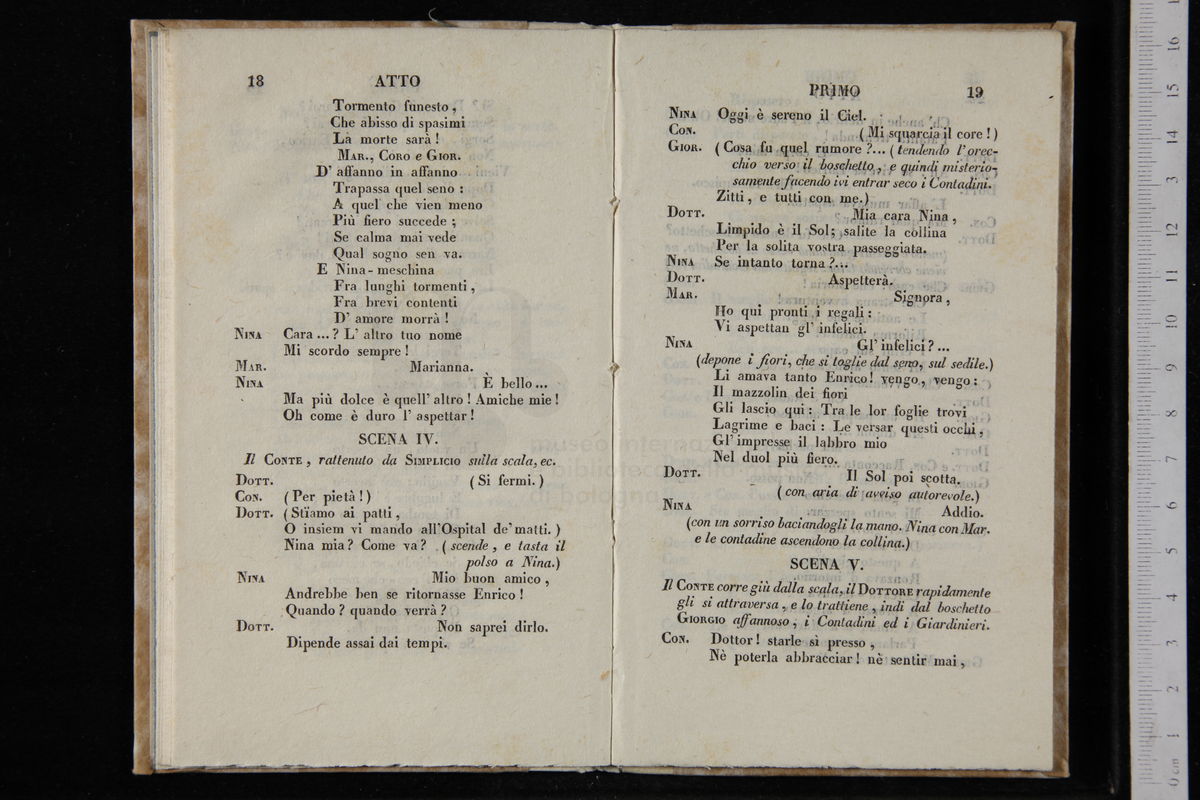 18 ATTO
Tormento funesto,
Che abisso di spasimi
La morte sarà!
MAR., CORO e GIOR.
D' affanno in affanno
Trapassa quel seno:
A quel che vien meno
Più fiero succede;
Se calma mai vede
Qual sogno sen va.
E Nina-meschina
Fra lunghi tormenti,
Fra brevi contenti
D' amore morrà!
NINA Cara ... ? L' altro tuo nome
Mi scordo sempre!
MAR. Marianna.
NINA È bello...
Ma più dolce è quell' altro! Amiche mie!
Oh come è duro l' aspettar!
SCENA IV.
Il CONTE, rattenuto da SIMPLICIO sulla scala, ec.
DOTT. (Si fermi.)
CON. (Per pietà!)
DOTT. (Stiamo ai patti,
O insiem vi mando all'Ospital de' matti.)
Nina mia? Come va? (scende, e tasta il
polso a Nina.)
NINA Mio buon amico,
Andrebbe ben se ritornasse Enrico!
Quando? quando verrà?
DOTT. Non saprei dirlo.
Dipende assai dai tempi.
PRIMO 19
NINA Oggi è sereno il Ciel.
CON. (Mi squarcia il core!)
GIOR. (Cosa fu quel rumore?... (tendendo l'orec-
chio verso il boschetto, e quindi misterio-
samente facendo ivi entrar seco i Contadini.
Zitti, e tutti con me.)
DOTT. Mia cara Nina,
Limpido è il Sol; salite la collina
Per la solita vostra passeggiata.
NINA Se intanto torna?...
DOTT. Aspetterà.
MAR. Signora,
Ho qui pronti i regali:
Vi aspettan gl' infelici.
NINA Gl' infelici?...
(depone i fiori, che si toglie dal seno, sul sedile.)
Li amava tanto Enrico! vengo, vengo:
Il mazzolin dei fiori
Gli lascio qui: Tra le lor foglie trovi
Lagrime e baci: Le versar questi occhi,
Gl' impresse il labbro mio
Nel duol più fiero.
DOTT. Il Sol poi scotta.
(con aria di avviso autorevole.)
NINA Addio.
(con un sorriso baciandogli la mano. Nina con Mar.
e le contadine ascendono la collina.)
SCENA V.
Il CONTE corre giù dalla scala, il DOTTORE rapidamente
gli si attraversa, e lo trattiene, indi dal boschetto
GIORGIO affannoso, i Contadini ed i Giardinieri.
CON. Dottor! starle sì presso,
Nè poterla abbracciar! nè sentir mai,